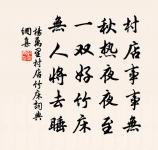 村店事事無
秋熱夜夜至
一双好竹床
無人將去睡
楊萬里村店竹床詞典
網